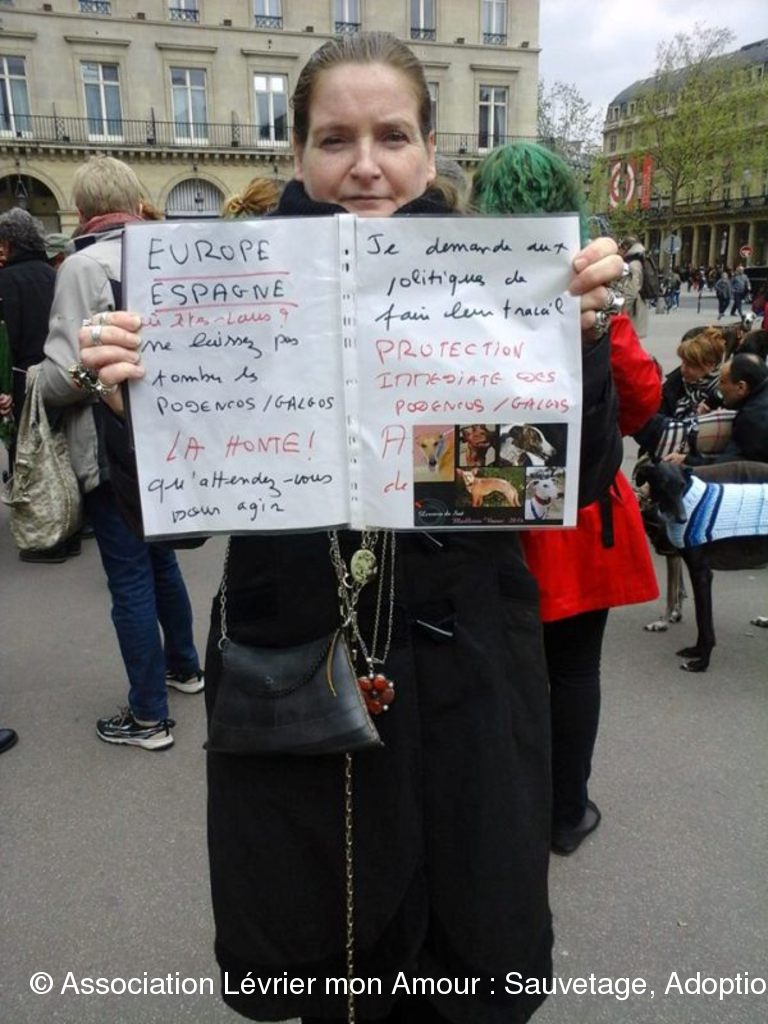 EUROPE
ESPAGNE
où êtes-vous ?
ne laissez pas
tomber les
PODENCOS / GALGOS
LA HONTE !
qu'attendez-vous
pour agir
Je demande aux
politiques de
faire leur travail
PROTECTION
IMMEDIATE DES
PODENCOS / GALGOS
A
de
© Association Lévrier mon Amour : Sauvetage, Adoptio